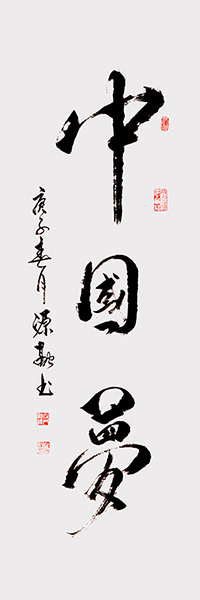 中國夢
庚子春月源敭书